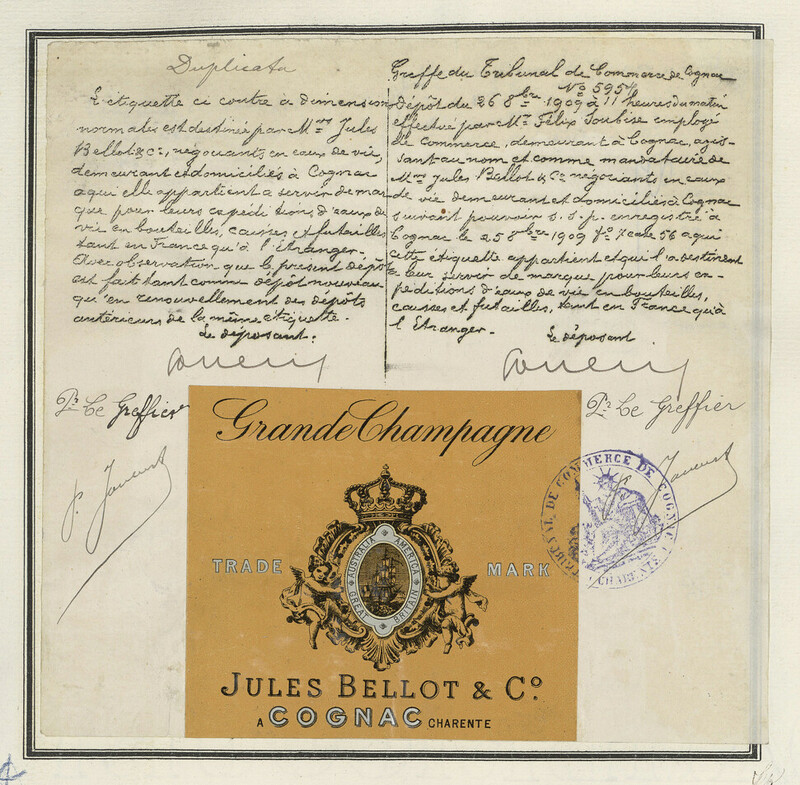 Duplicata
L'étiquette ci contre à dimension
normales est destinée par Mrs Jules
Bellot & Cie, négociants en eaux de vie,
demeurant et domiciliés à Cognac
a qui elle appartient a servir de mar-
que pour leurs expéditions d'eaux de
vie en bouteilles, caisses et futailles
tant en France qu'à l'Etranger.
Avec observation que le présent dépôt
est fait tant comme dépôt nouveau
qu'en renouvellement des dépôts
antérieurs de la même étiquette.
Le déposant.
Greffe du Tribunal de Commerce de Cognac
No 5954
Dépôt du 26 8bre 1909 à 11 heures du matin
effectué par Mr Félix Soubise employé
de Commerce, demeurant à Cognac, agis-
sant au nom et comme mandataire de
Mrs Jules Bellot & Cie négociants en eaux
de vie demeurant et domiciliés à Cognac
suivant pouvoir s.s.p. enregistré à
Cognac le 25 8bre 1909 fo 7 case 56 a qui
cette étiquette appartient et qui l'a destinent
a leur servir de marque pour leurs ex-
péditions d'eaux de vie en bouteilles,
caisses et futailles, tant en France qu'à
l'Etranger.
Le déposant
Pr Le Greffier
Pr Le Greffier
Grande Champagne
TRADE MARK
AUSTRALIA AMERICA
GREAT BRITAIN
JULES BELLOT & Co.
A COGNAC CHARENTE
TRIBUNAL DE COMMERCE DE COGNAC
(CHARENTE)